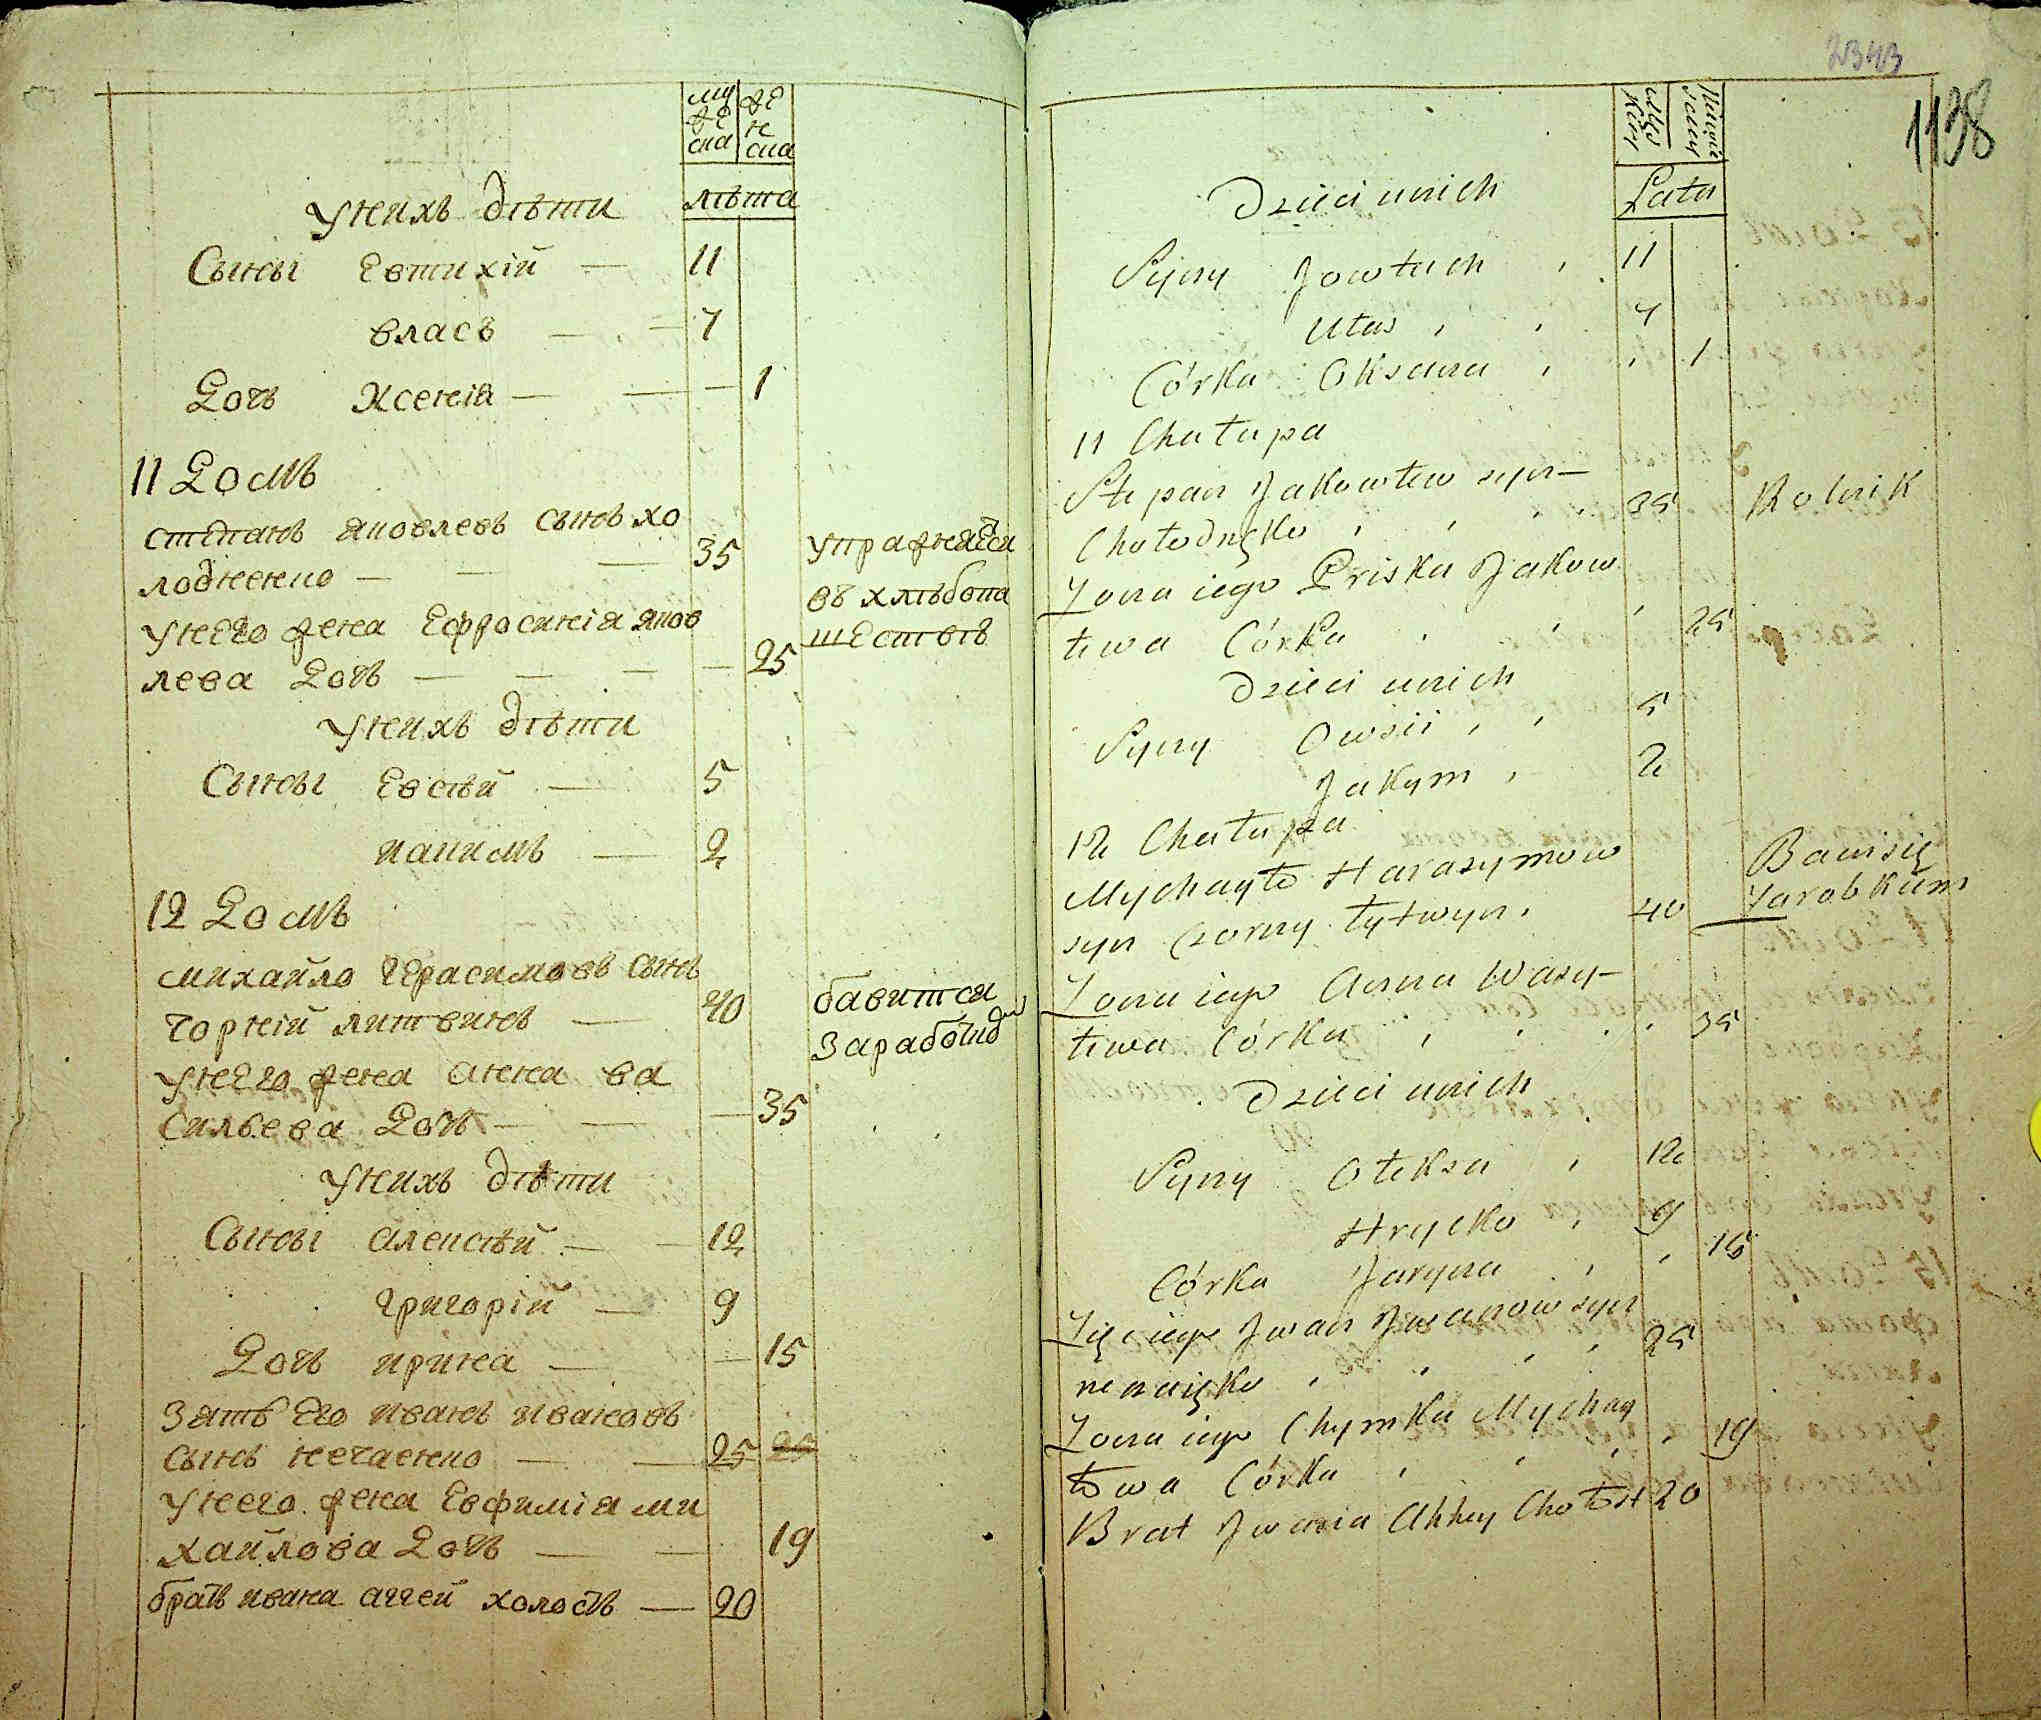 муже
ска
жен
ска
лѣта
у нихъ дѣти
Сыны Евтихій — 11
власъ — 7
Дочь Ксенія — — 1
11 Домъ
степанъ яковлевъ сынъ хо
лодненко — 35
упражняется
въ хлѣбопа
шествѣ
у него жена Ефросинія яков
лева Дочь — 25
у нихъ дѣти
Сыны Евсѣй — 5
иакимъ — 2
12 Домъ
михайло Герасимовъ сынъ
Чорній литвинъ — 40
бавится
заработкомъ
у него жена анна ва
сильева Дочь — 35
у нихъ дѣти
Сыны алексѣй — 12
григорій — 9
Дочь ирина — 15
зять Его иванъ ивановъ
сынъ нечаенко — 25 25
у него жена Евфимія ми
хайлова Дочь — 19
братъ ивана аггей холостъ — 20
2343
1138
Lata
Dzieci u nich
Syny Jowtuch 11
Ułas 7
Córka Oksana 1
11 Chałupa
Stepan Jakowłew syn
Chołodnęko 35 Rolnik
Żona iego Priska Jakow
łewa Córka 25
Dzieci u nich
Syny Owsii 5
Jakym 2
12 Chałupa
Mychayło Harasymow
syn Czorny łytwyn 40
Bawi się
Zarobkiem
Żona iego Anna Wasy-
lewa Córka 35
Dzieci u nich
Syny Ołeksa 12
Hrycko 9
Córka Jaryna 15
Zięć iego Jwan Jwanow syn
neczaięko 25
Żona iego Chymka Mychay
łowa Córka 19
Brat Jwana Ahhey Chołost 20